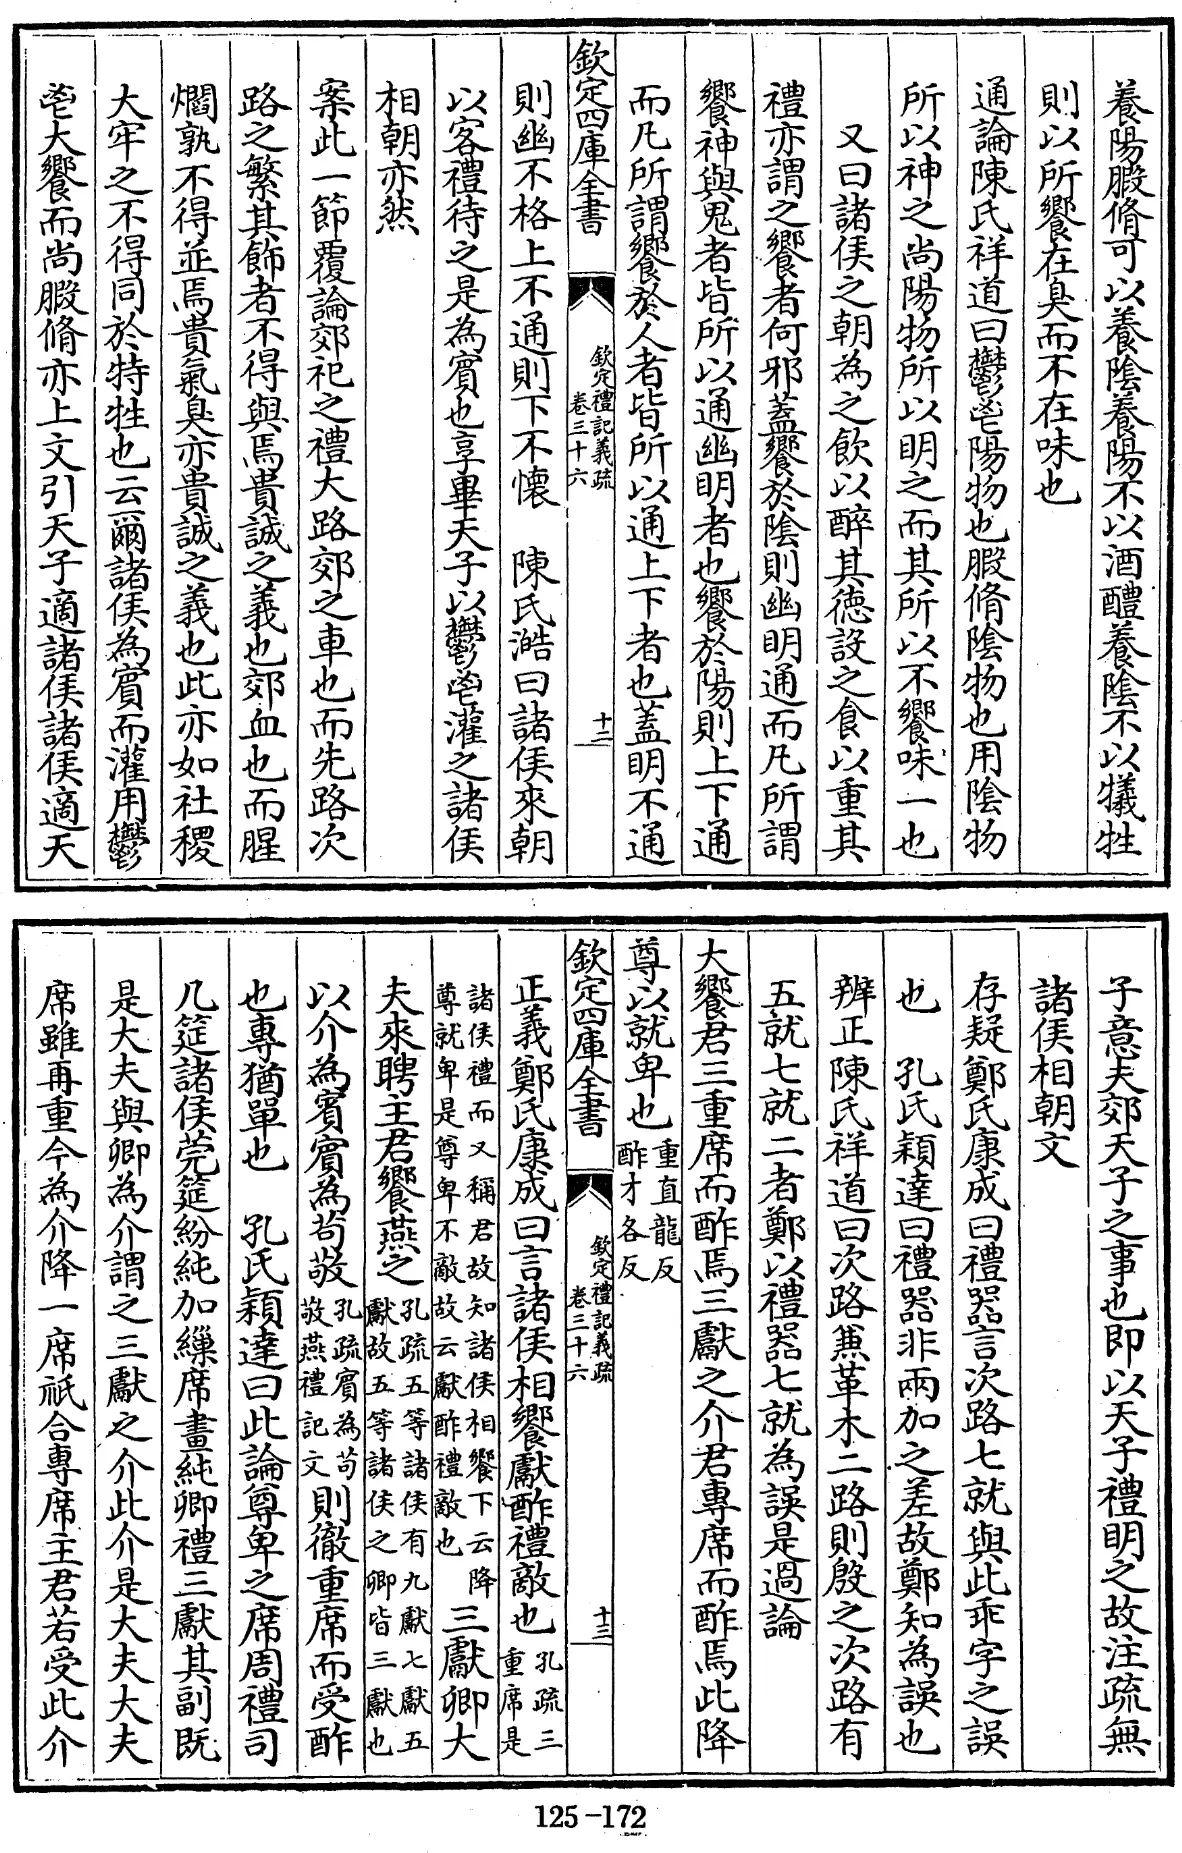 養陽腶脩可以養陰養陽不以酒醴養陰不以犧牲
則以所饗在臭而不在味也
通論陳氏祥道曰鬱鬯陽物也腶脩陰物也用陰物
所以神之尚陽物所以明之而其所以不饗味一也
又曰諸侯之朝為之飲以醉其德設之食以重其
禮亦謂之饗者何邪蓋饗於陰則幽明通而凡所謂
饗神與鬼者皆所以通幽明者也饗於陽則上下通
而凡所謂饗於人者皆所以通上下者也蓋明不通
欽定四庫全書
欽定禮記義疏
卷三十六
十二
則幽不格上不通則下不懷 陳氏澔曰諸侯來朝
以客禮待之是為賓也享畢天子以鬱鬯灌之諸侯
相朝亦然
案此一節覆論郊祀之禮大路郊之車也而先路次
路之繁其飾者不得與焉貴誠之義也郊血也而腥
爓孰不得並焉貴氣臭亦貴誠之義也此亦如社稷
大牢之不得同於特牲也云爾諸侯為賓而灌用鬱
鬯大饗而尚腶脩亦上文引天子適諸侯諸侯適天
子意夫郊天子之事也即以天子禮明之故注疏無
諸侯相朝文
存疑鄭氏康成曰禮器言次路七就與此乖字之誤
也 孔氏穎達曰禮器非兩加之差故鄭知為誤也
辨正陳氏祥道曰次路兼革木二路則殷之次路有
五就七就二者鄭以禮器七就為誤是過論
大饗君三重席而酢焉三獻之介君專席而酢焉此降
尊以就卑也重直龍反
酢才各反
欽定四庫全書
欽定禮記義疏
卷三十六
十三
正義鄭氏康成曰言諸侯相饗獻酢禮敵也孔疏三
重席是
諸侯禮而又稱君故知諸侯相饗下云降
尊就卑是尊卑不敵故云獻酢禮敵也三獻卿大
夫來聘主君饗燕之孔疏五等諸侯有九獻七獻五
獻故五等諸侯之卿皆三獻也
以介為賓賓為苟敬孔疏賓為苟
敬燕禮記文則徹重席而受酢
也專猶單也 孔氏穎達曰此論尊卑之席周禮司
几筵諸侯莞筵紛純加繅席畫純卿禮三獻其副既
是大夫與卿為介謂之三獻之介此介是大夫大夫
席雖再重今為介降一席祇合專席主君若受此介
125-172